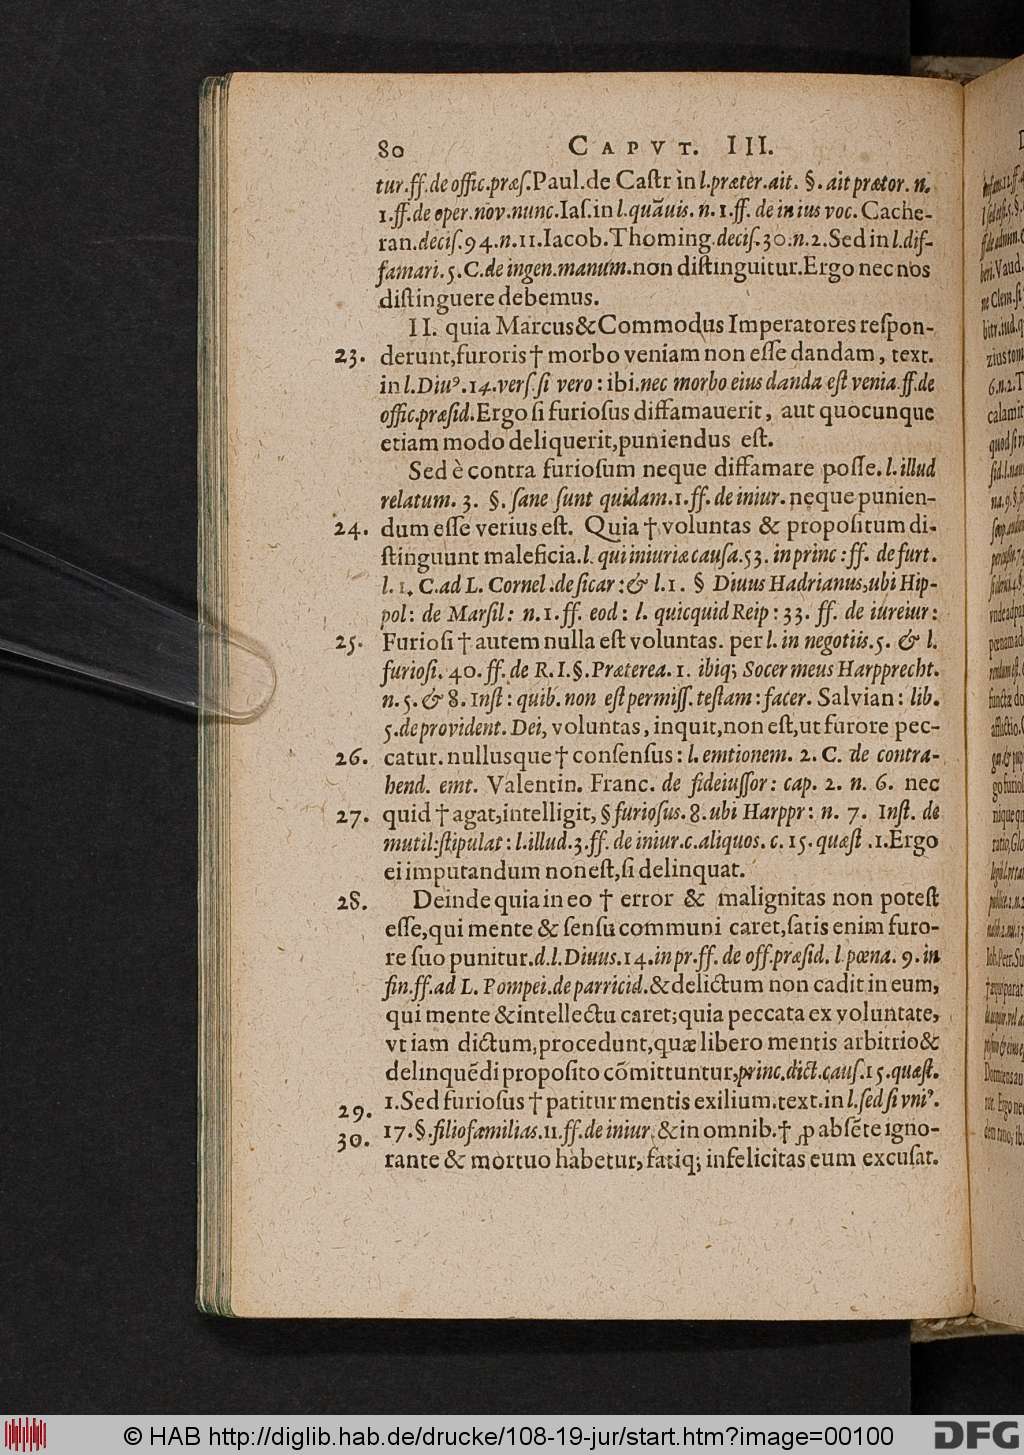 80 CAPVT. III.
tur.ff.de offic.præſ.Paul.de Caſtr in l.præter.ait. §. ait prætor. n.
1.ff.de oper.nov.nunc.Iaſ.in l.quãuis. n. 1.ff. de in ius voc. Cache-
ran.deciſ.94.n.11.Iacob.Thoming.deciſ.30.n.2.Sed in l.dif-
famari. 5. C.de ingen.manum.non diſtinguitur.Ergo nec nos
diſtinguere debemus.
II. quia Marcus&Commodus Imperatores reſpon-
23. derunt,furoris † morbo veniam non eſſe dandam, text.
in l.Diuꝰ.14.verſ.ſi vero: ibi.nec morbo eius danda eſt venia.ff.de
offic.præſid.Ergo ſi furioſus diffamauerit, aut quocunque
etiam modo deliquerit,puniendus eſt.
Sed è contra furioſum neque diffamare poſſe. l. illud
relatum. 3. §. ſane ſunt quidam.1.ff. de iniur. neque punien-
24. dum eſſe verius eſt. Quia † voluntas & propoſitum di-
ſtinguunt maleficia.l. qui iniuriæ cauſa.53. in princ:ff. de furt.
l. 1. C.ad L. Cornel:de ſicar:& l.1. § Diuus Hadrianus,ubi Hip-
pol: de Marſil: n.1.ff. eod: l. quicquid Reip: 33. ff. de iureiur:
25. Furioſi † autem nulla eſt voluntas. per l. in negotiis.5. & l.
furioſi. 40.ff.de R.I.§.Præterea. 1. ibiq; Socer meus Harpprecht.
n.5.& 8. Inſt: quib. non eſt permiſſ.teſtam:facer. Salvian: lib.
5.de provident. Dei, voluntas, inquit,non eſt,ut furore pec-
26. catur. nullusque † conſenſus: l. emtionem. 2. C. de contra-
hend. emt. Valentin. Franc. de fideiuſſor: cap. 2. n. 6. nec
27. quid † agat,intelligit, § furioſus. 8.ubi Harppr: n. 7. Inſt. de
mutil:ſtipulat: l.illud.3.ff. de iniur.c.aliquos. c. 15. quæſt .1.Ergo
ei imputandum non eſt,ſi delinquat.
28. Deinde quia in eo † error & malignitas non poteſt
eſſe,qui mente & ſenſu communi caret,ſatis enim furo-
re ſuo punitur.d.l.Diuus.14.in pr.ff. de off.præſid. l.pœna. 9. in
fin.ff.ad L. Pompei.de parricid.&delictum non cadit in eum,
qui mente &intellectu caret;quia peccata ex voluntate,
vt iam dictum,procedunt,quæ libero mentis arbitrio&
delinquẽdi propoſito cõmittuntur,princ.dict.cauſ.15.quæſt.
29. 1.Sed furioſus † patitur mentis exilium.text.in l.ſed ſi vniꝰ.
30. 17.§.filiofamilias.11.ff.de iniur.&in omnib.† ꝓ abſẽte igno-
rante & mortuo habetur, fatiq; infelicitas eum excuſat.
© HAB http://diglib.hab.de/drucke/108-19-jur/start.htm?image=00100
DFG